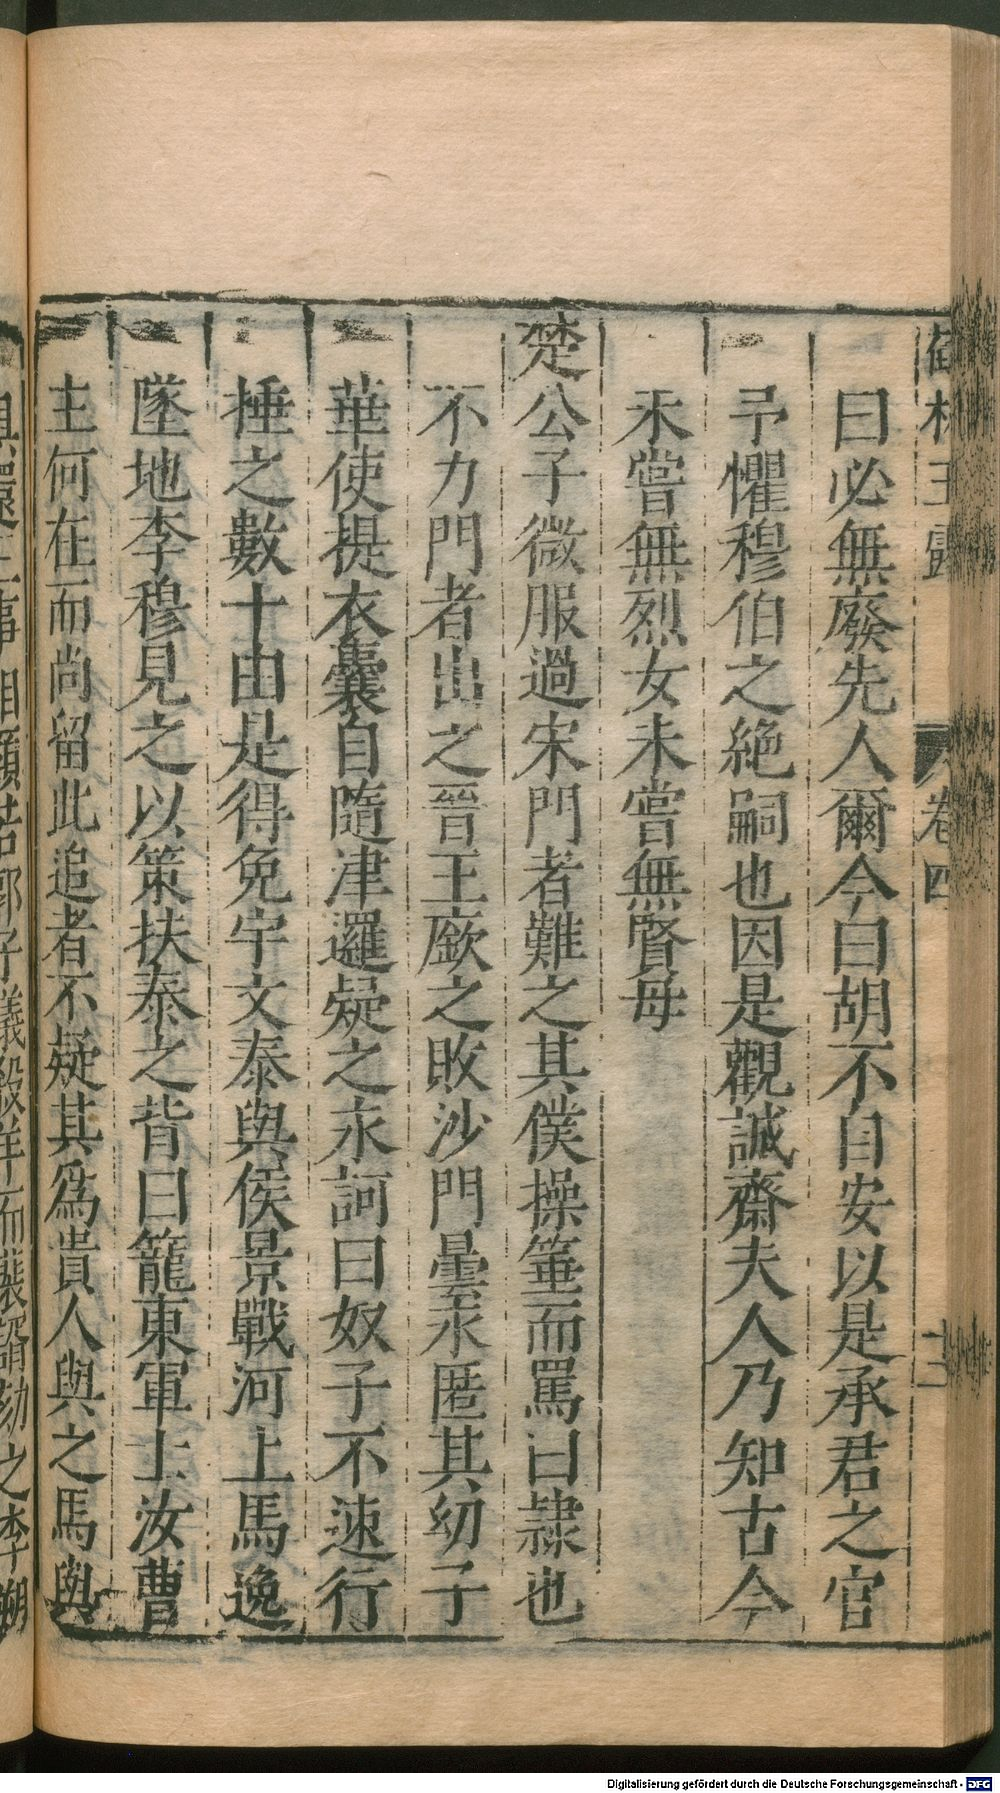 曰必無廢先人爾今曰胡不自安以是承君之官
予懼穆伯之絕嗣也因是觀誠齋夫人乃知古今
未嘗無烈女未嘗無賢母
楚公子微服過宋門者難之其僕操箠而罵曰隷也
不力門者出之晉王廞之敗沙門曇永匿其幼子
華使提衣囊自隨津邏疑之永訶曰奴子不速行
捶之數十由是得免宇文泰與侯景戰河上馬逸
墜地李穆見之以策扶泰之背曰籠東軍士汝曹
主何在而尚留此追者不疑其爲貴人與之馬與
卷四
Digitalisierung gefördert durch die Deutsche Forschungsgemeinschaft - DFG